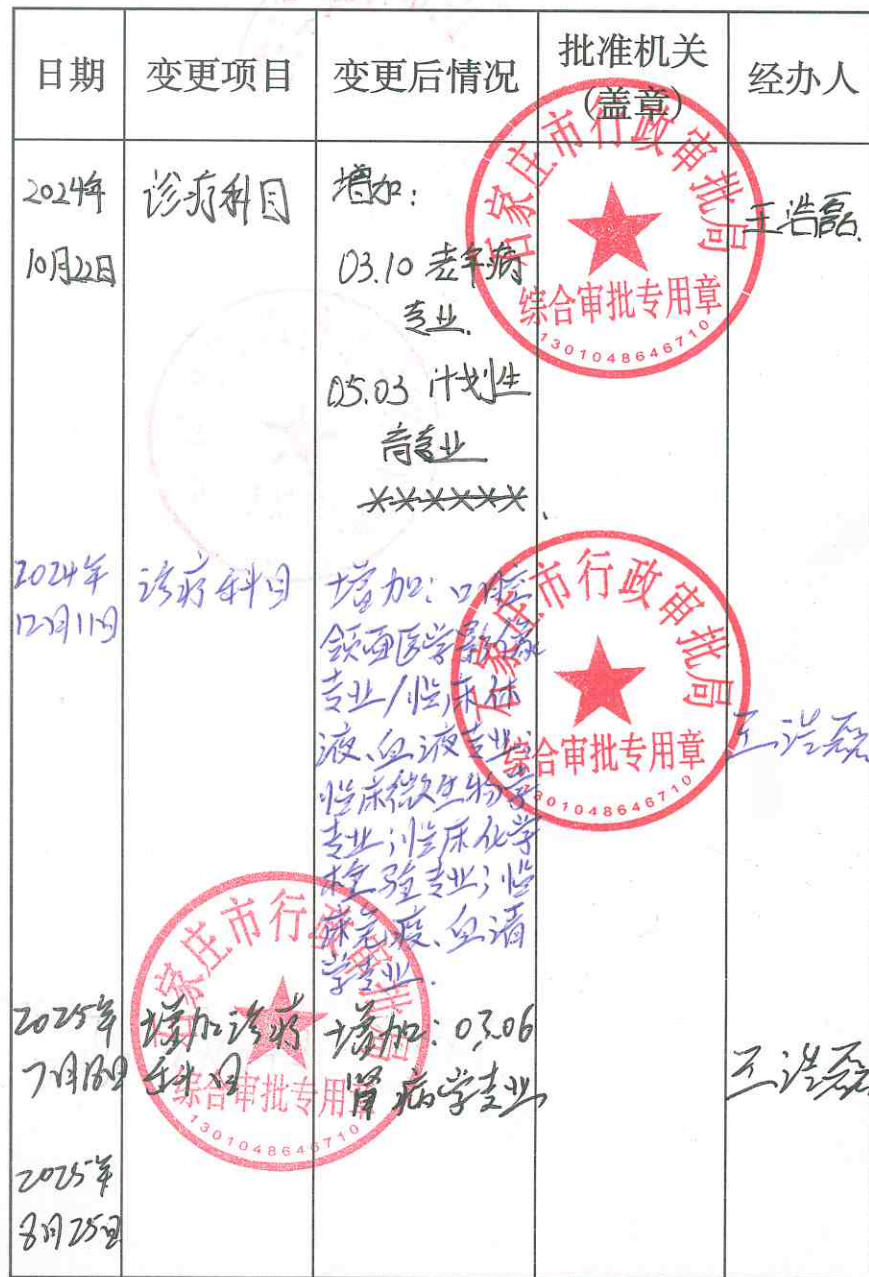 日期 变更项目 变更后情况 批准机关 经办人
(盖章)
2024年 诊疗科目 增加:
10月22日 03.10 老年病
专业.
05.03 计划生
育专业
××××××
石家庄市行政审批局
综合审批专用章
1301048646710
王浩磊
2024年 诊疗科目 增加:口腔
12月11日 颌面医学影像
专业/临床体
液、血液专业;
临床微生物学
专业;临床化学
检验专业;临
床免疫、血清
学专业.
石家庄市行政审批局
综合审批专用章
1301048646710
王浩磊
2025年 增加诊疗 增加:03.06
7月18日 科目 肾病学专业
石家庄市行政审批局
综合审批专用章
1301048646710
王浩磊
2025年
8月25日